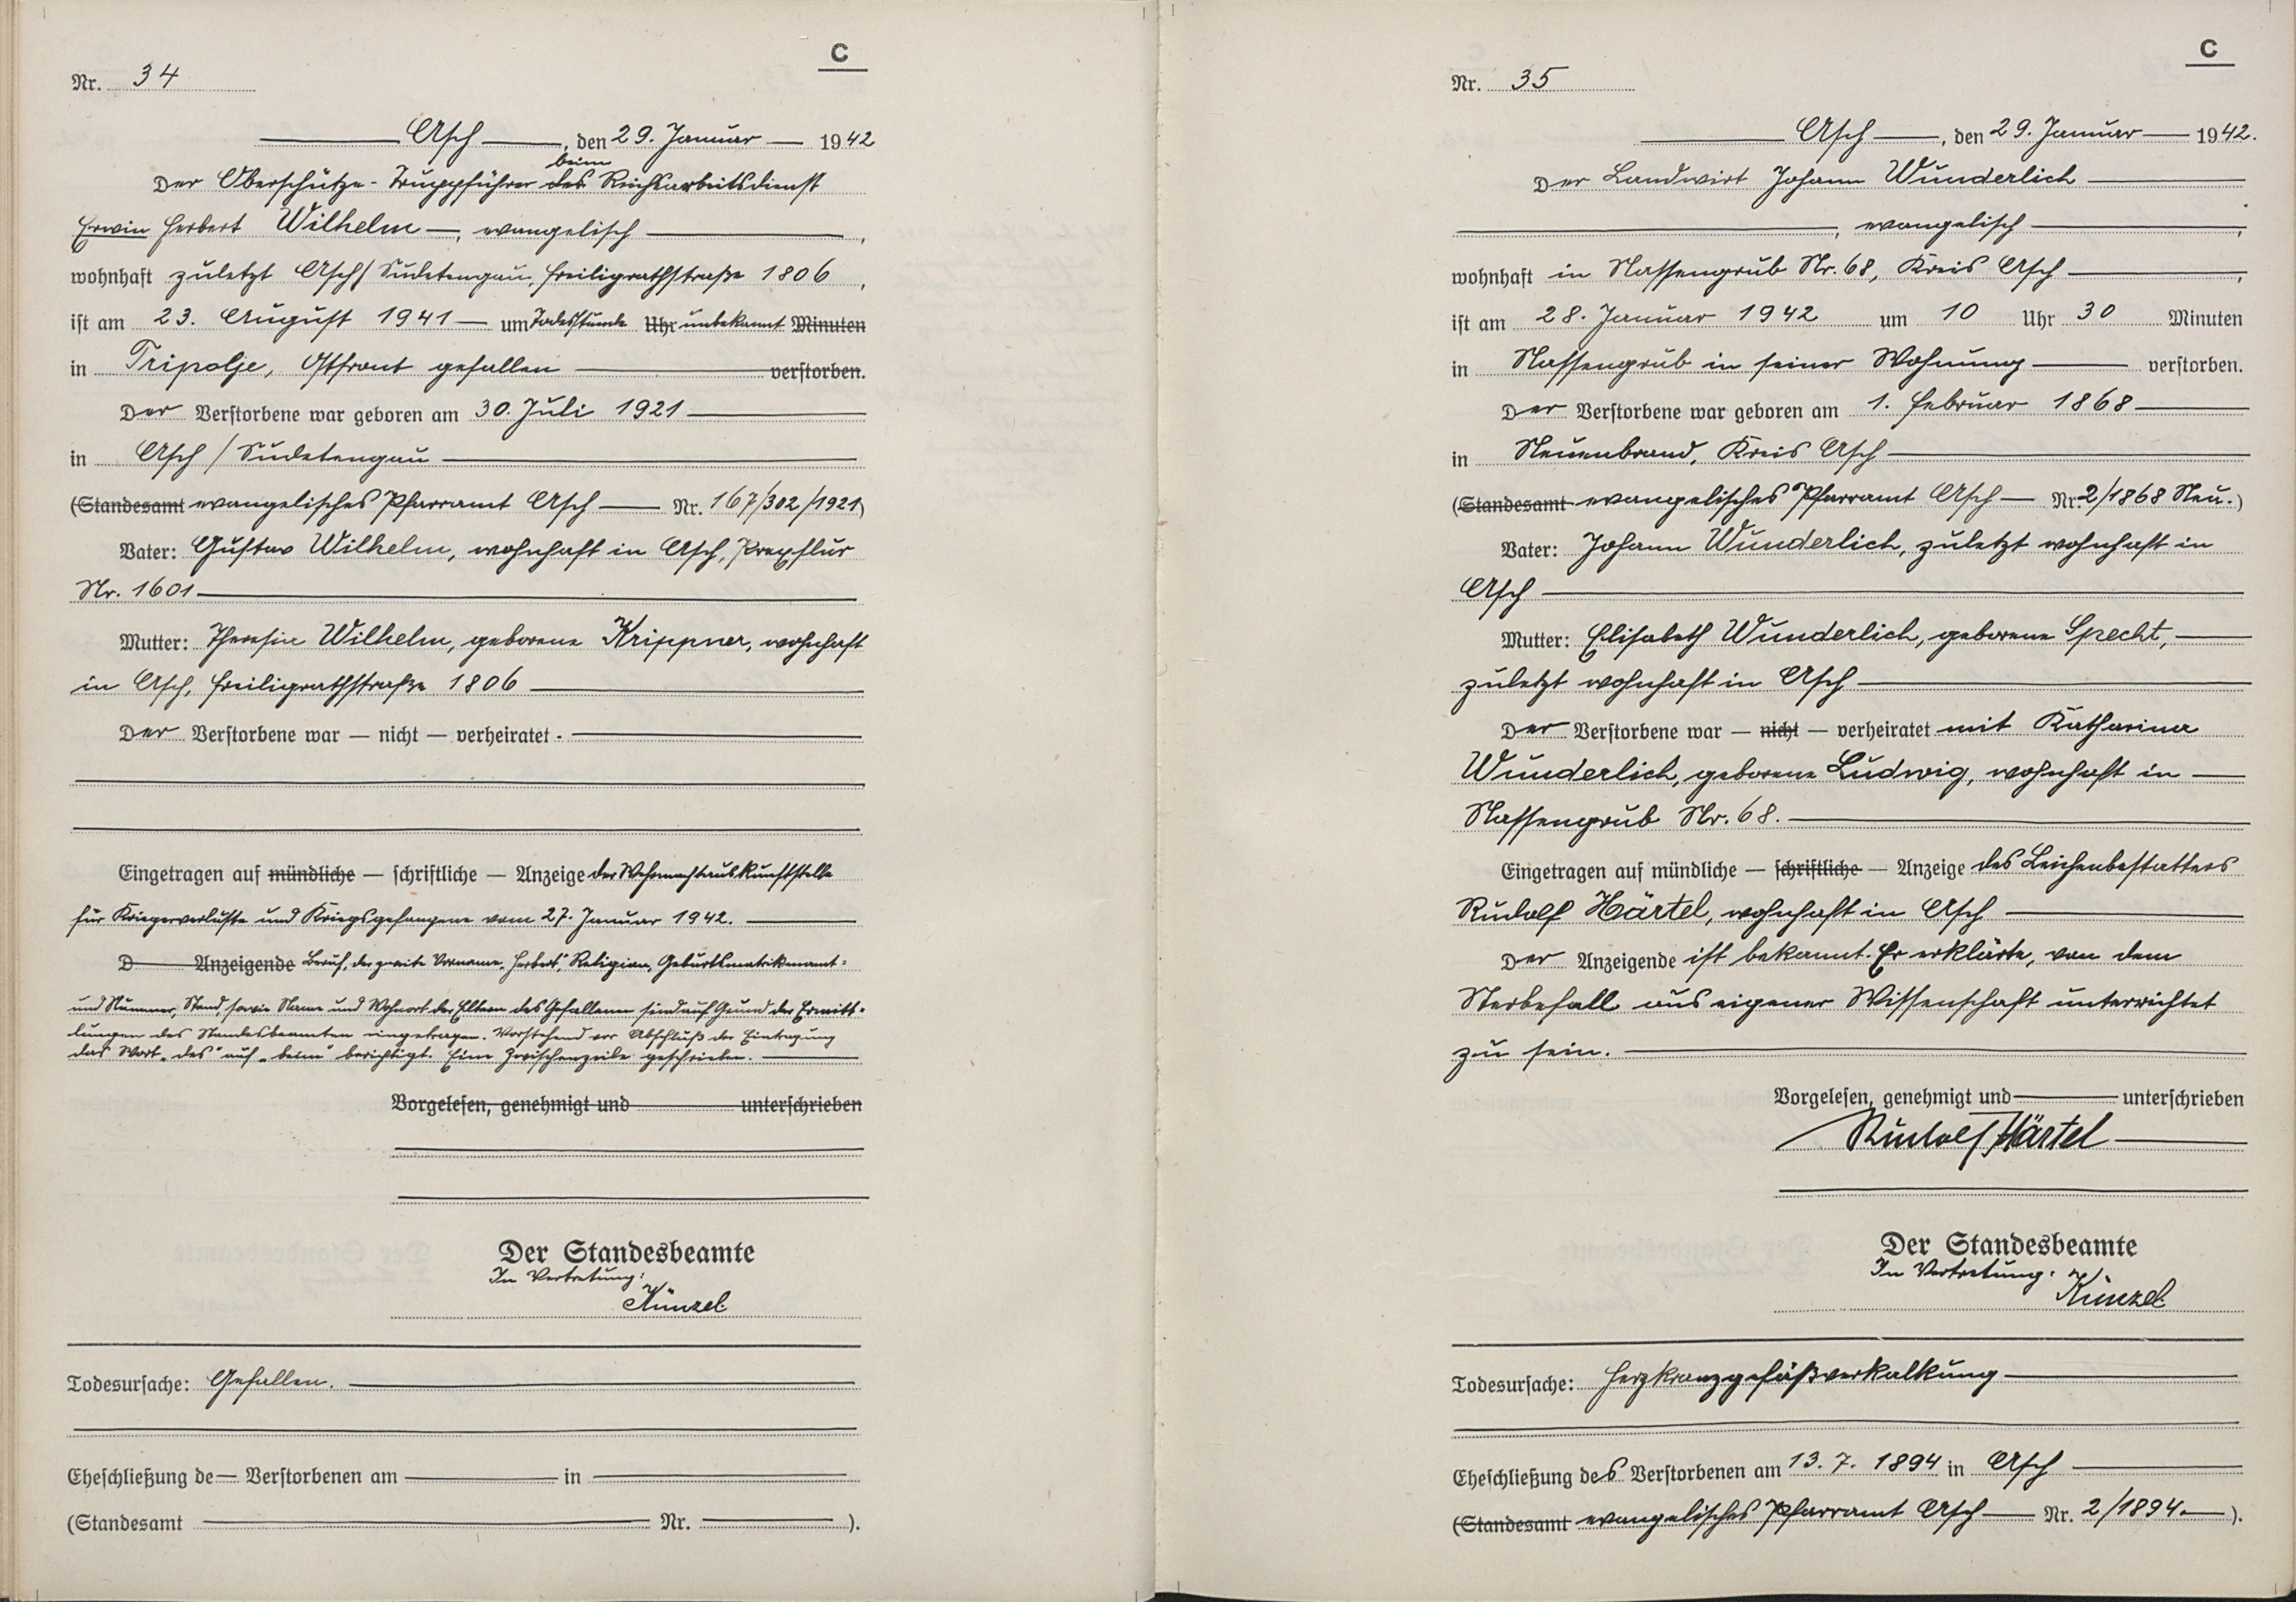 C
Nr. 34
Asch, den 29. Januar 1942
beim
Der Oberschütze-Truppführer des Reichsarbeitsdienst
Erwin Herbert Wilhelm, evangelisch,
wohnhaft zuletzt Asch/Sudetengau, Freiligrathstraße 1806,
ist am 23. August 1941 um Todesstunde Uhr unbekannt Minuten
in Tripolje, Ostfront gefallen verstorben.
Der Verstorbene war geboren am 30. Juli 1921
in Asch / Sudetengau
(Standesamt evangelisches Pfarramt Asch Nr. 167/302/1921)
Vater: Gustav Wilhelm, wohnhaft in Asch,
Nr. 1601
Mutter: Theresia Wilhelm, geborene Krippner, wohnhaft
in Asch, Freiligrathstraße 1806
Der Verstorbene war — nicht — verheiratet.
Eingetragen auf mündliche — schriftliche — Anzeige der Wehrmachtauskunftstelle
für Kriegerverluste und Kriegsgefangene vom 27. Januar 1942.
D Anzeigende Beruf, der zweite Vorname „Herbert", Religion, Geburtsmatrikenamt-
und Nummer, Stand, sowie Name und Wohnort der Eltern des Gefallenen sind auf Grund der Ermitt-
lungen des Standesbeamten eingetragen. Vorstehend vor Abschluß der Eintragung
das Wort „des" auf „beim" berichtigt. Eine Zwischenzeile geschrieben.
Vorgelesen, genehmigt und unterschrieben
Der Standesbeamte
In Vertretung:
Künzel
Todesursache: Gefallen.
Eheschließung de— Verstorbenen am in
(Standesamt Nr. ).
C
Nr. 35
Asch, den 29. Januar 1942.
Der Landwirt Johann Wunderlich
, evangelisch,
wohnhaft in Nassengrub Nr. 68, Kreis Asch,
ist am 28. Januar 1942 um 10 Uhr 30 Minuten
in Nassengrub in seiner Wohnung verstorben.
Der Verstorbene war geboren am 1. Februar 1868
in Neuenbrand, Kreis Asch
(Standesamt evangelisches Pfarramt Asch Nr. 2/1868 Neu.)
Vater: Johann Wunderlich, zuletzt wohnhaft in
Asch
Mutter: Elisabeth Wunderlich, geborene Specht,
zuletzt wohnhaft in Asch
Der Verstorbene war — nicht — verheiratet mit Katharina
Wunderlich, geborene Ludwig, wohnhaft in
Nassengrub Nr. 68.
Eingetragen auf mündliche — schriftliche — Anzeige des Leichenbestatters
Rudolf Härtel, wohnhaft in Asch
Der Anzeigende ist bekannt. Er erklärte, von dem
Sterbefall aus eigener Wissenschaft unterrichtet
zu sein.
Vorgelesen, genehmigt und unterschrieben
Rudolf Härtel
Der Standesbeamte
In Vertretung:
Künzel
Todesursache: Herzkranzgefäßverkalkung
Eheschließung des Verstorbenen am 13. 7. 1894 in Asch
(Standesamt evangelisches Pfarramt Asch Nr. 2/1894.).